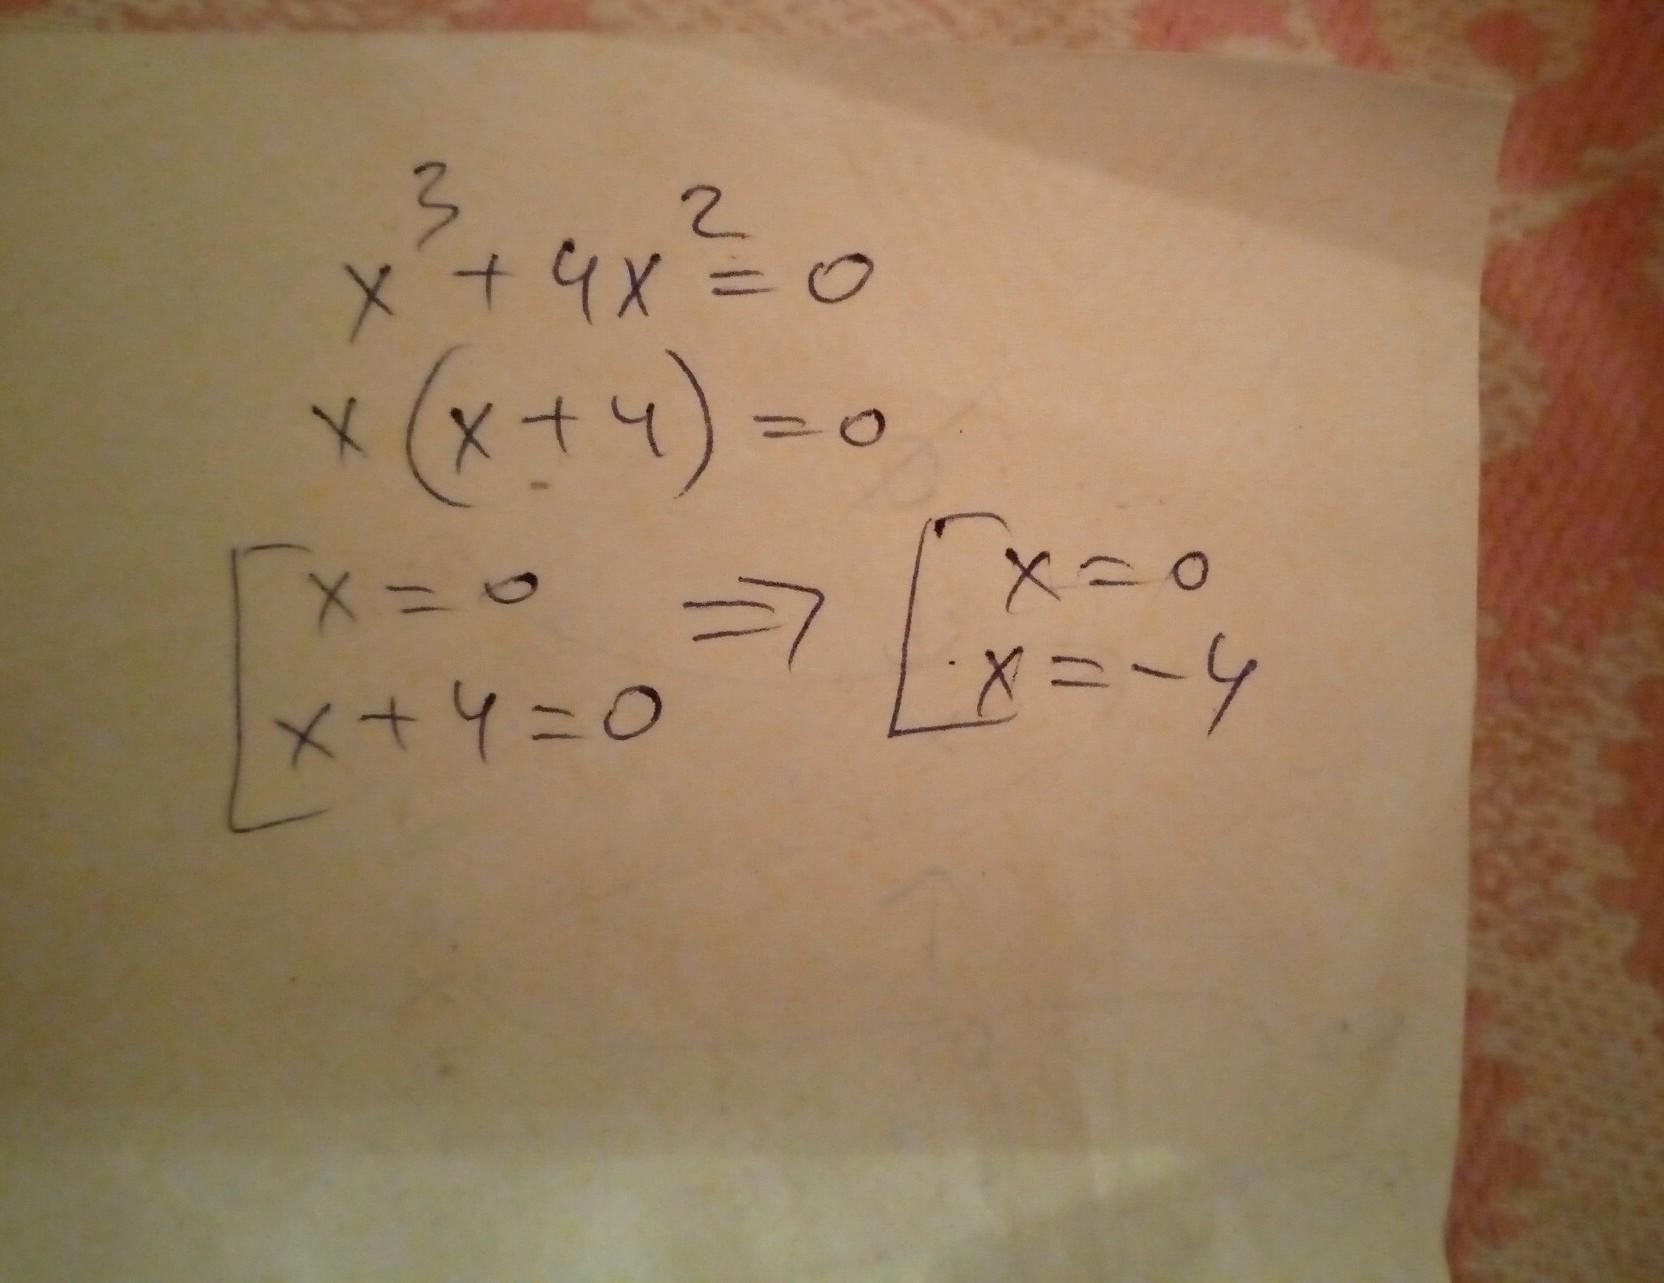 x³ + 4x² = 0
x(x + 4) = 0
[ x = 0 ⇒ [ x = 0
x + 4 = 0 x = -4